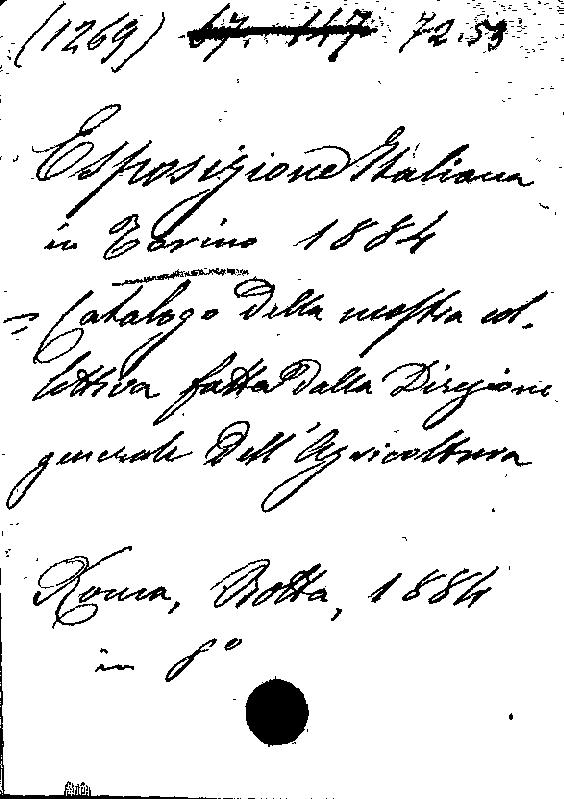 (1269) 67. 147 72.53
Esposizione Italiana
in Torino 1884
= Catalogo della mostra col-
lettiva fatta dalla Direzione
generale dell'Agricoltura
Roma, Botta, 1884
in 8°